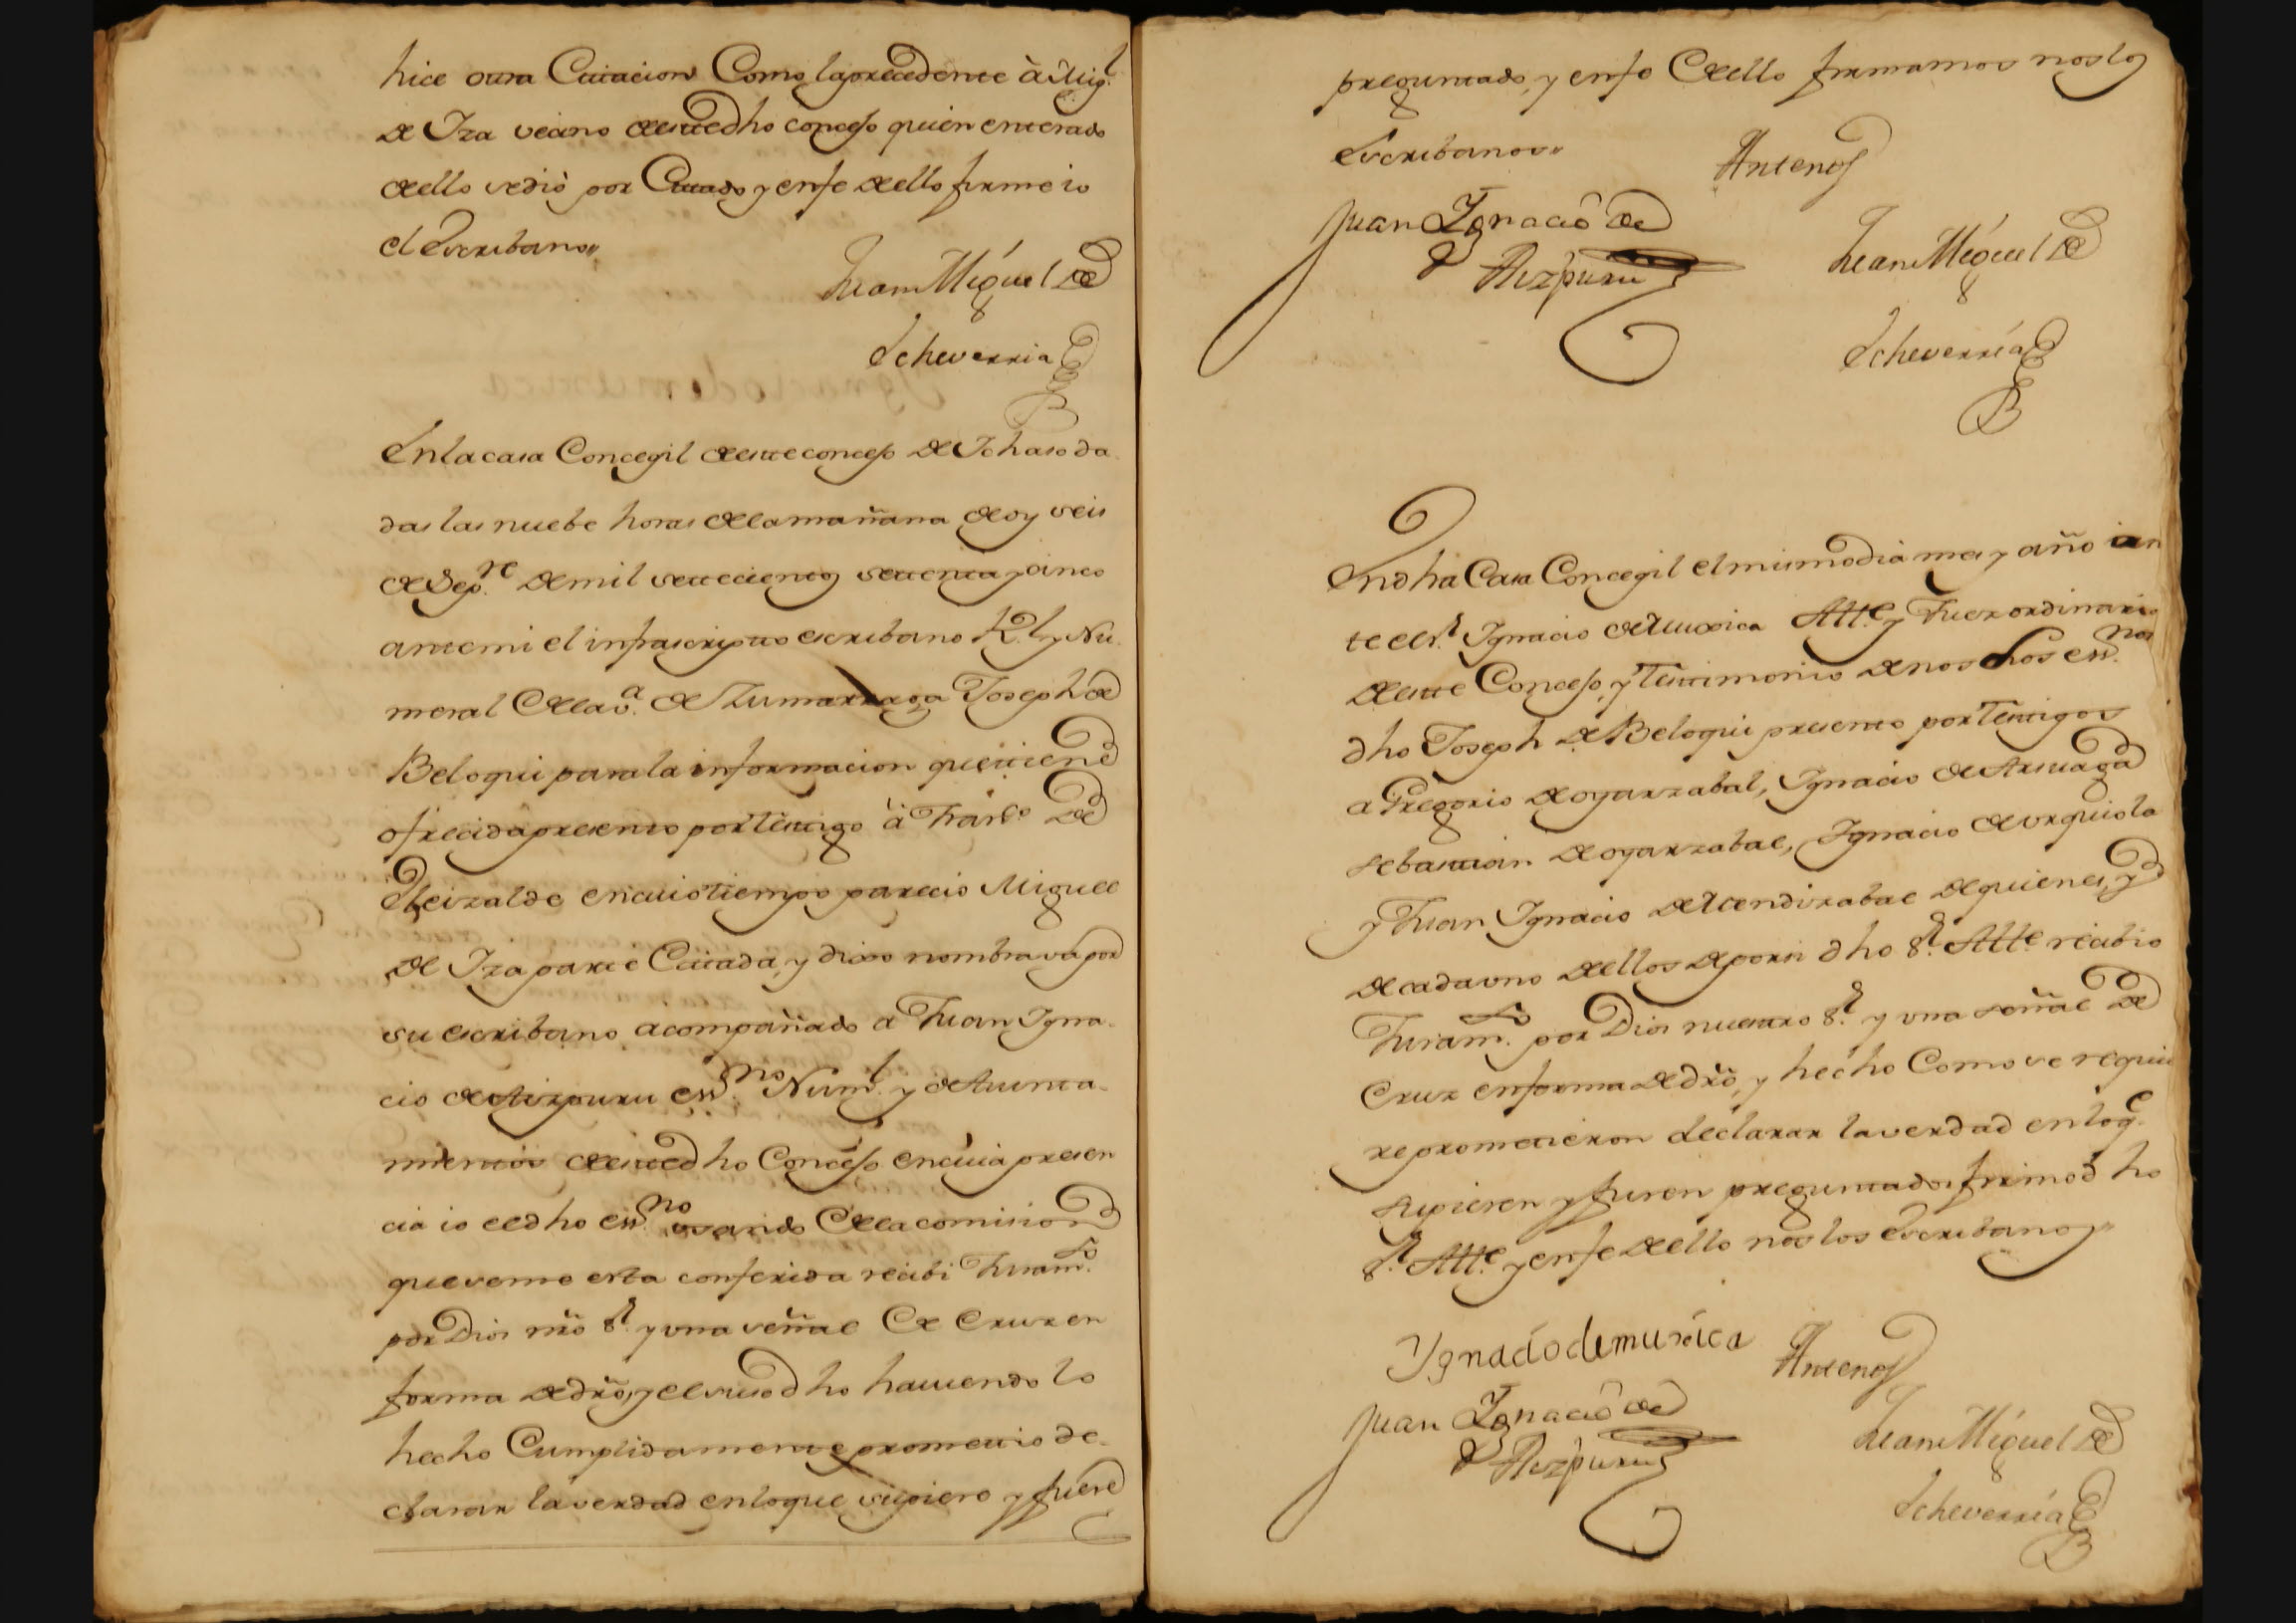 hice otra Citacion Como la precedente à Mig.l
de Iza vecino de este dho concejo quien enterado
de ello se dió por Citado y en fe de ello firme io
el Escribano
Juan Miguel de
Echeverria
En la casa Concegil de este concejo de Ichaso da
das las nuebe horas de la mañana de oy seis
de Sep.re de mil setecientos setenta y cinco
ante mi el infrascripto escribano R.l y Nu
meral de la v.a de Zumarraga Joseph de
Beloqui para la informacion que tiene
ofrecida presento por testigo à Fran.co de
Eleizalde en cuio tiempo parecio Miguel
de Iza parte Citada, y dixo nombrava por
su escribano acompañado a Juan Igna
cio de Aizpuru ess.no Num.l y de Aiunta
mientos de este dho Concejo en cuia presen
cia io el dho ess.no usando de la comision
que se me esta conferida recibi Juram.to
por Dios nro s.r y una señal de Cruz en
forma de dro, y el suso dho haviendo lo
hecho Cumplidamente prometio de
clarar la verdad en lo que supiere y fuere
preguntado, y en fe de ello firmamos nos los
Escribanos
Antenos
Juan Ignacio de
Aizpuru
Juan Miguel de
Echeverria
En dha Casa Concegil el mismo dia mes y año an
te el s.r Ignacio de Muxica Alt.e y Juez ordinario
de este Concejo, y Testimonio de nos dhos ess.nos
dho Joseph de Beloqui presento por Testigos
a Gregorio de oyarzabal, Ignacio de Arsuaga
sebastian de oyarzabal, Ignacio de urquiola
y Juan Ignacio de Mendizabal de quienes, y
de cada uno de ellos de por si dho s.r Alt.e recibio
Juram.to por Dios nuestro s.r y una señal de
Cruz en forma de dro, y hecho Como se requie
re prometieron declarar la verdad en lo q.e
supieren y fueren preguntados firmo dho
s.r Alt.e y en fe de ello nos los Escribanos
Ygnacio de muxica
Antenos
Juan Ignacio de
Aizpuru
Juan Miguel de
Echeverria